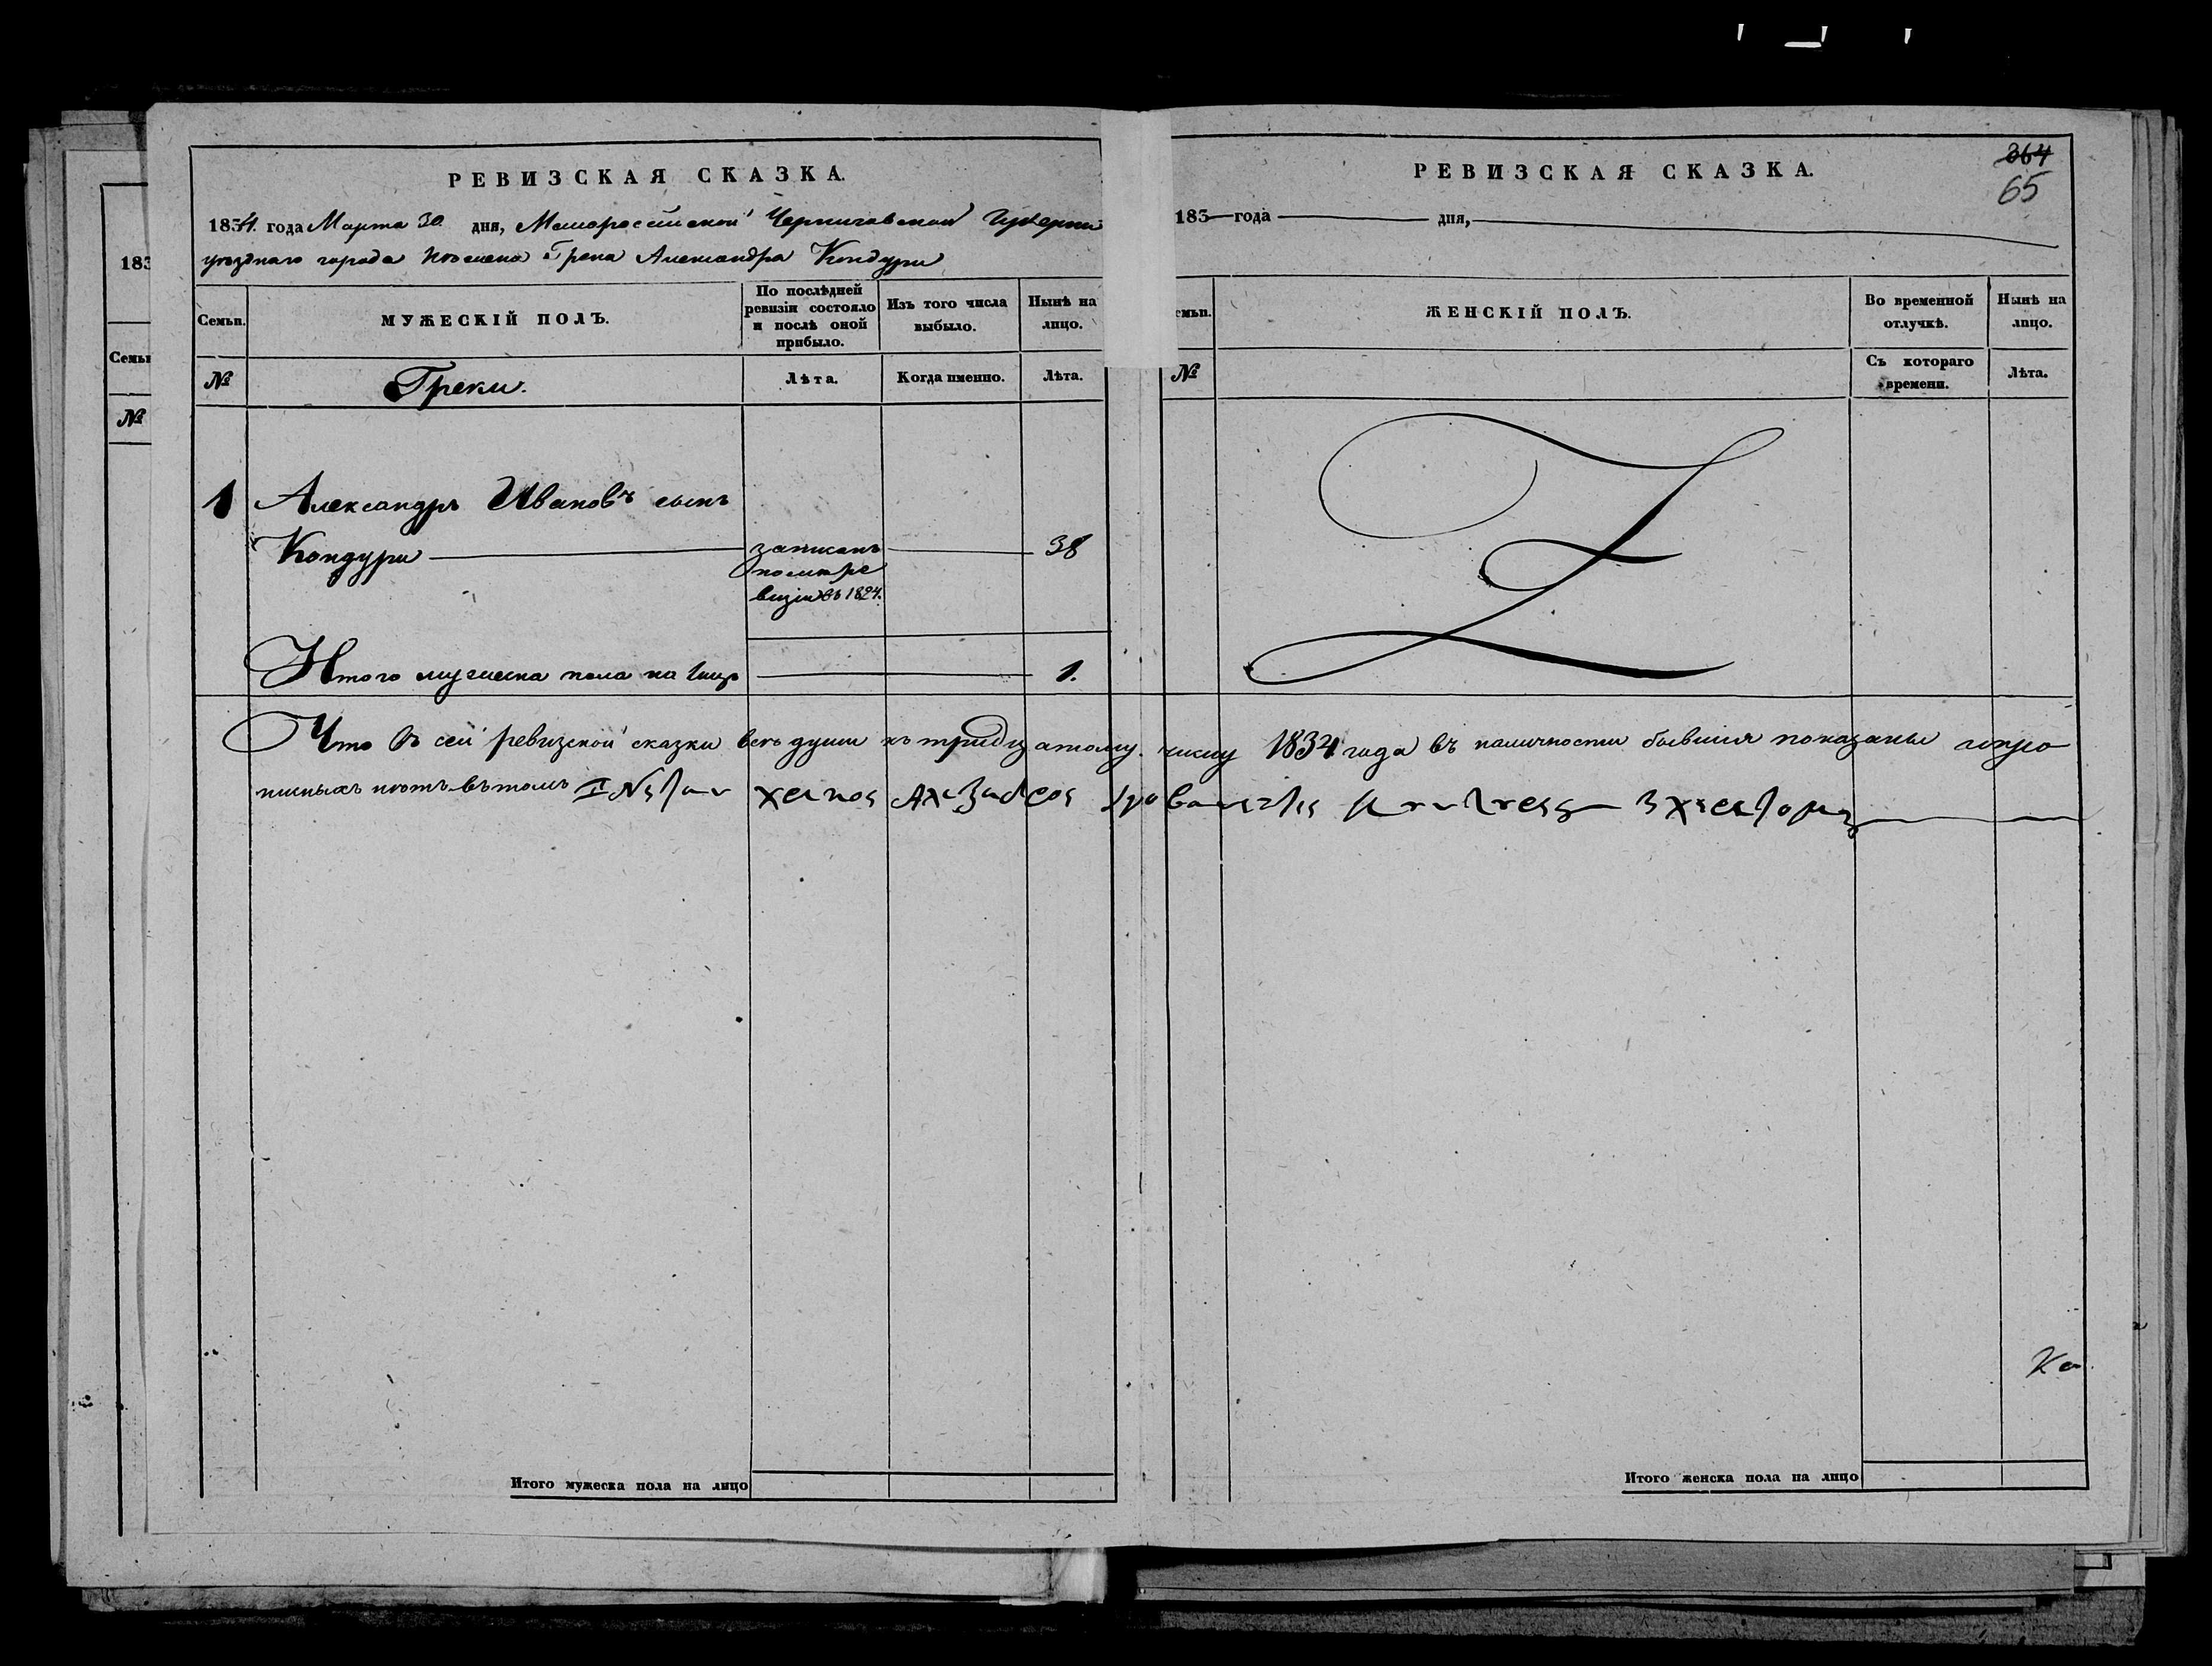 364
65
РЕВИЗСКАЯ СКАЗКА.
1834. года Марта 30 дня, Малороссийской Черниговской Губерни
уезднаго города Нѣжена Грека Александра Кондури
Семьи. МУЖЕСКІЙ ПОЛЪ. По послѣдней ревизіи состояло и послѣ оной прибыло. Изъ того числа выбыло. Нынѣ на лицо.
№ Греки. Лѣта. Когда именно. Лѣта.
1 Александръ Ивановъ сынъ
Кондури записанъ 38
после ре
визіи въ 1824.
Итого мужеска пола на лицо 1.
РЕВИЗСКАЯ СКАЗКА.
183 года дня,
емьи. ЖЕНСКІЙ ПОЛЪ. Во временной отлучкѣ. Нынѣ на лицо.
№ Съ котораго времени. Лѣта.
Что въ сей ревизской сказки всѣ души къ тридцатому числу 1834 года въ наличности бывшия показаны и про
писныхъ нѣтъ въ томъ
Ка
Итого мужеска пола на лицо
Итого женска пола на лицо
183
Семьи
№